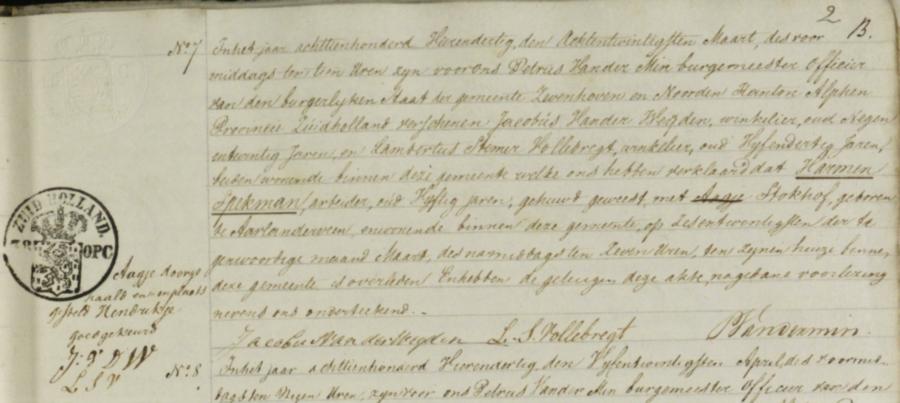 2
B.
No. 7 In het jaar achttienhonderd Vierendertig, den Achtentwintigsten Maart, des voor
middags ten tien Uren zyn voor ons Petrus Van der Min burgemeester Officier
van den burgerlyken Staat der gemeente Zevenhoven en Noorden Kanton Alphen
Provincie Zuidholland verschenen Jacobus Van der Weyden, winkelier, oud Negen
entwintig Jaren, en Lambertus Stemer Vollebregt, winkelier, oud Vyfendertig Jaren,
beiden wonende binnen deze gemeente welke ons hebben verklaard dat Harmen
Spekman, arbeider, oud Vyftig jaren, gehuwd geweest met Aagje Stokhof, geboren
te Aarlanderveen, en wonende binnen deze gemeente, op Zesentwintigsten der te
genwoordige maand Maart, des namiddags ten Zeven Uren, ten zynen huize binnen
deze gemeente is overleden En hebben de getuigen deze akte, na gedane voorlezing
nevens ons onderteekend.
ZUID HOLLAND.
OPC
Aagje doorge
haald en in plaats
gesteld Hendrikje
goedgekeurd
J. v D W
L. S. V
Jacobus Van der Weyden L. S. Vollebregt P Van der min.
No. 8 In het jaar achttienhonderd Vierendertig den Vyfentwintigsten April, des voormid
dags ten Negen Uren, zyn voor ons Petrus Van der Min burgemeester Officier van den